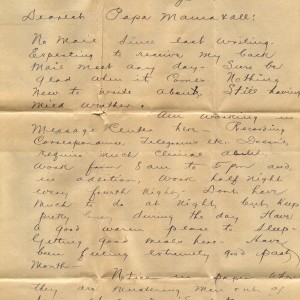 Dearest Papa Mama & all:
No Mail since last writing.
Expecting to receive my back
Mail most any day. Sure be
glad when it comes. Nothing
New to write about, Still having
Mild weather.
Am working in
Message Center here - Recording
Correspondence, Telegrams etc. Doesn't
require much Clerical ability.
Work from 8 am to 5 pm and,
in addition, work half night
every fourth night. Dont have
much to do at Night, but keep
pretty busy during the day. Have
a good warm place to sleep -
Getting good meals here - Have
been feeling extremely good past
Month -
Notice in paper where
they are mustering men out of